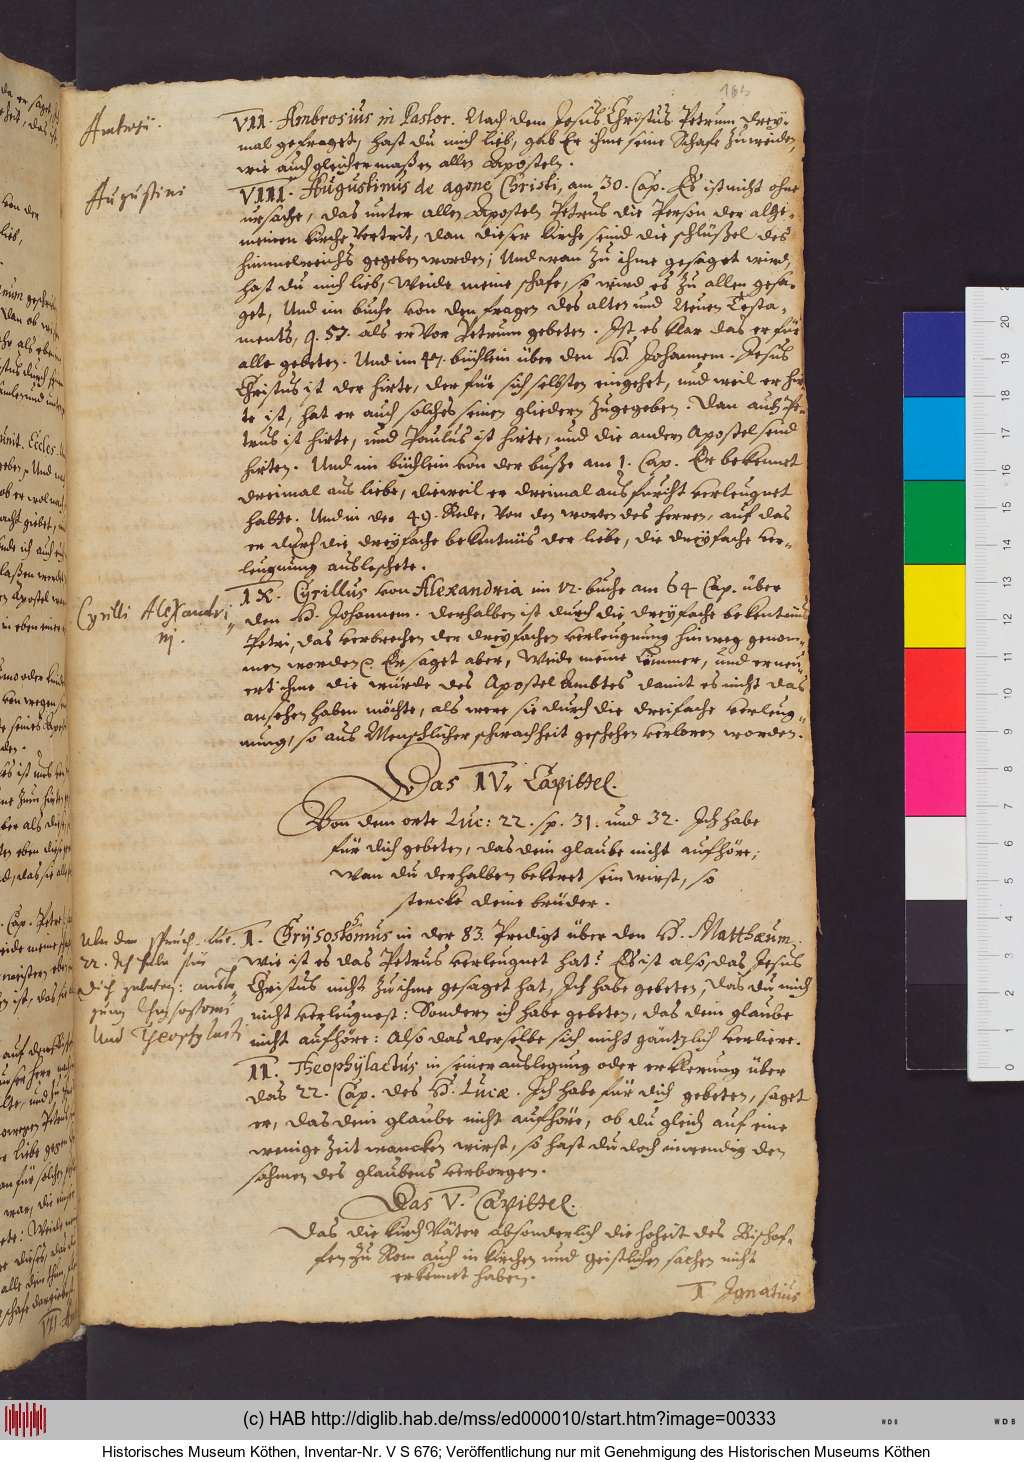 Ambrosii.
VII. Ambrosius in Pastor. Nach dem Jesus Christus Petrum drey-
mal gefraget, hast du mich lieb, gab Er ihme seine Schafe zu weiden,
wie auch gleichermaßen allen Aposteln.
Augustini
VIII. Augustinus de agone Christi, am 30. Cap. Es ist nicht ohne
ursache, das unter allen Aposteln Petrus die Person der alge-
meinen kirche vertrit, dan dieser kirche seind die schlüßel des
himmelreichs gegeben worden; Und wan zu ihme gesaget wird,
hast du mich lieb, Weide meine schafe, so wird es zu allen gesa-
get, Und im buche von den fragen des alten und Neuen Testa-
ments, q. 57. als er vor Petrum gebeten. Ist es klar das er für
alle gebeten. Und im 47. büchlein über den H. Johannem. Jesus
Christus ist der hirte, der für sich selbsten eingehet, und weil er hir-
te ist, hat er auch solches seinen gliedern zugegeben. Dan auch Pe-
trus ist hirte, und Paulus ist hirte, und die andern Apostel seind
hirten. Und im büchlein von der buße am 1. Cap. Er bekennet
dreimal aus liebe, dieweil er dreimal aus furcht verleugnet
hatte. Und in der 49. Rede, Von den worten des herren, auf das
er durch die dreyfache bekentnüs der liebe, die dreyfache ver-
leugnung ausleschete.
Cyrilli Alexandri-
nj.
IX. Cyrillus von Alexandria im 12. buche am 64 Cap. über
den H. Johannem. derhalben ist durch die dreyfache bekentnüs
Petri, das verbrechen der dreyfachen verleugnung hinweg genom-
men worden. Er saget aber, Weide meine Lämmer, und erneu-
ert ihme die würde des Apostel Ambtes damit es nicht das
ansehen haben möchte, als were sie durch die dreifache verleug-
nung, so aus Menschlicher schwachheit geschehen verloren worden.
Das IV. Capittel.
Von dem orte Luc: 22. sp. 31. und 32. Ich habe
für dich gebeten, das dein glaube nicht aufhöre;
wan du derhalben bekeret sein wirst, so
stercke deine brüder.
Uber den spruch Luc.
22. Ich habe für
dich gebeten: ausle-
gung Chrysostomi
Und Theophylacti
I. Chrysostomus in der 83. Predigt über den H. Matthæum.
Wie ist es das Petrus verleugnet hat? Es ist also, das Jesus
Christus nicht zu ihme gesaget hat, Ich habe gebeten, das du mich
nicht verleugnest: Sondern ich habe gebeten, das dein glaube
nicht aufhöre: Also das derselbe sich nicht gäntzlich verliere.
II. Theophylactus in seiner auslegung oder erklerung über
das 22. Cap. des H. Lucæ. Ich habe für dich gebeten, saget
er, das dein glaube nicht aufhöre, ob du gleich auf eine
wenige zeit wancken wirst, so hast du doch inwendig den
sahmen des glaubens verborgen.
Das V. Capittel.
Das die Kirch Väter absonderlich die hoheit des Bischof-
fen zu Rom auch in kirchen und geistlichen sachen nicht
erkennet haben.
I Ignatius
(c) HAB http://diglib.hab.de/mss/ed000010/start.htm?image=00333
Historisches Museum Köthen, Inventar-Nr. V S 676; Veröffentlichung nur mit Genehmigung des Historischen Museums Köthen